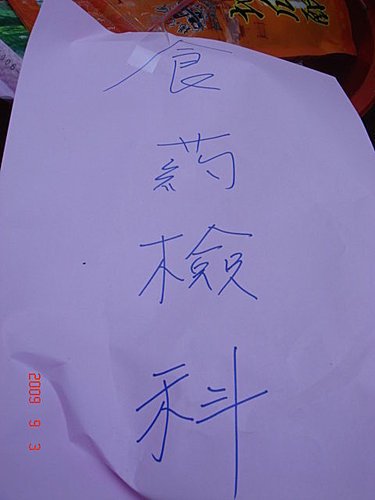 食
药
檢
科
2009 9 3